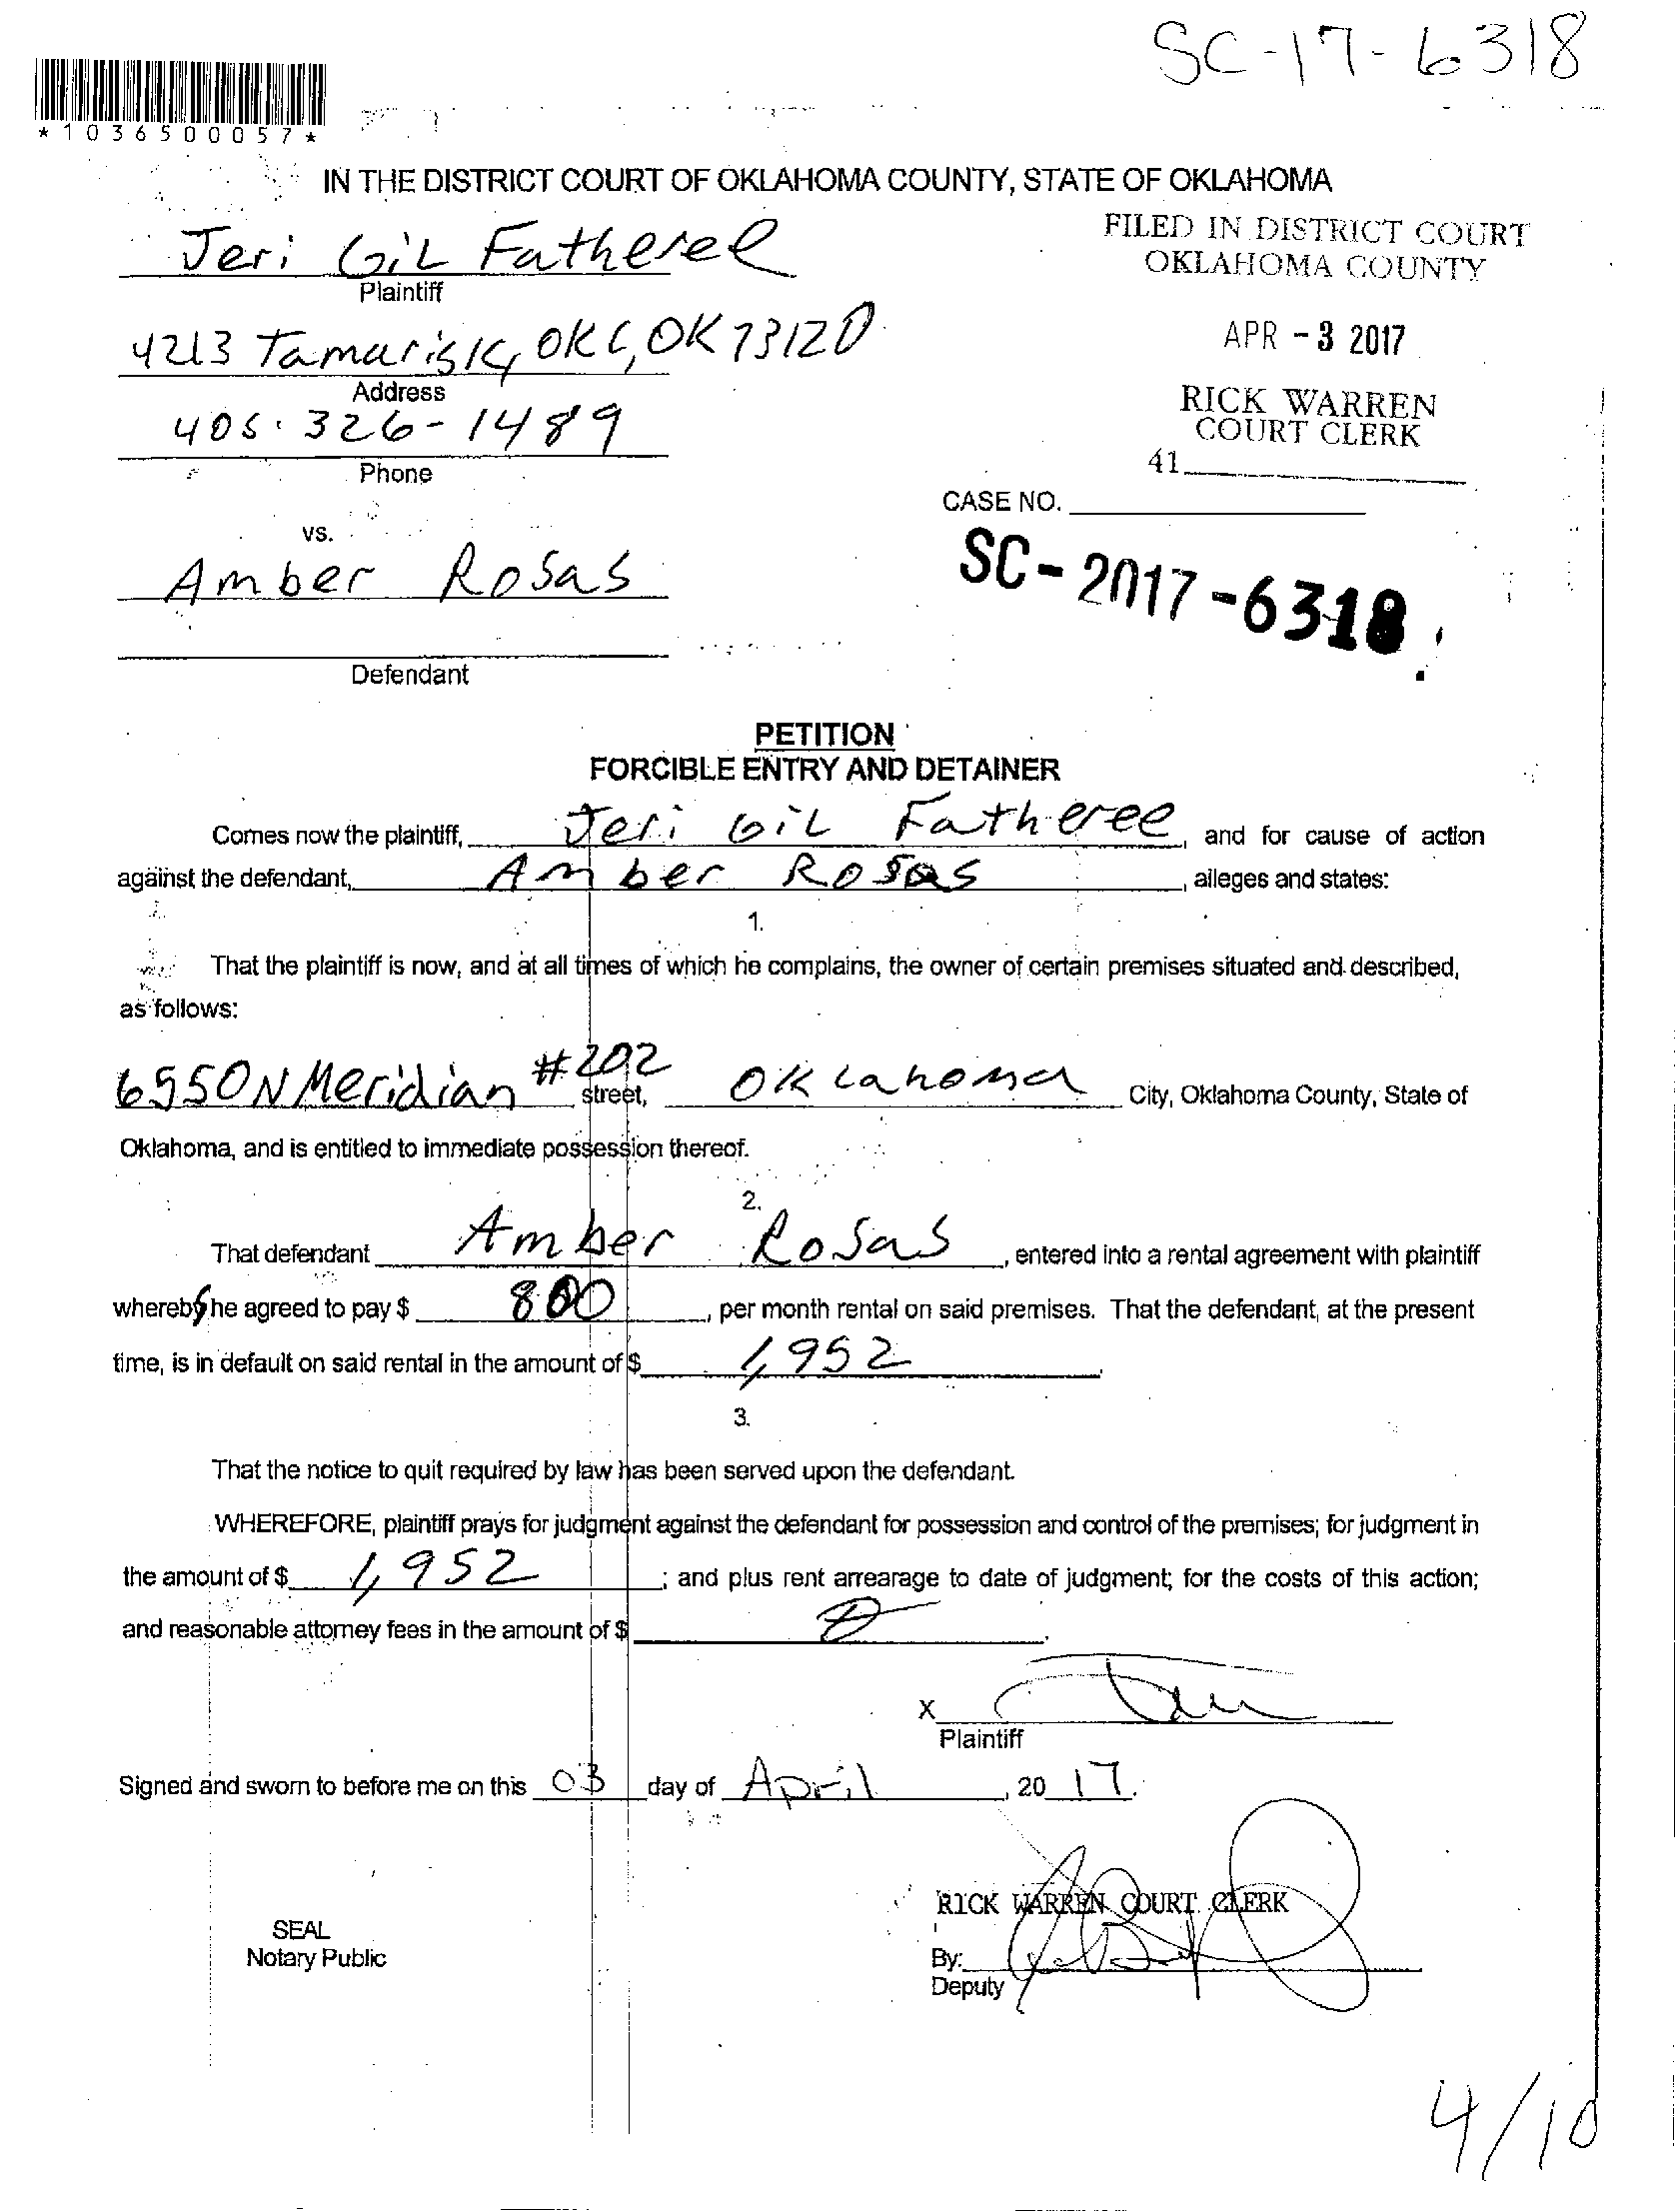 SC-17-6318
*1036500057*
IN THE DISTRICT COURT OF OKLAHOMA COUNTY, STATE OF OKLAHOMA
Jeri Gil Fatheree
Plaintiff
FILED IN DISTRICT COURT
OKLAHOMA COUNTY
4213 Tamarisk, OKC, OK 73120
Address
APR -3 2017
405.326-1489
Phone
RICK WARREN
COURT CLERK
41
CASE NO.
vs.
SC-2017-6318
Amber Rosas
Defendant
PETITION
FORCIBLE ENTRY AND DETAINER
Comes now the plaintiff, Jeri Gil Fatheree, and for cause of action
against the defendant, Amber Rosas, alleges and states:
1.
That the plaintiff is now, and at all times of which he complains, the owner of certain premises situated and described,
as follows:
6550 N Meridian #202 street, Oklahoma City, Oklahoma County, State of
Oklahoma, and is entitled to immediate possession thereof.
2.
That defendant Amber Rosas, entered into a rental agreement with plaintiff
whereby she agreed to pay $ 800, per month rental on said premises. That the defendant, at the present
time, is in default on said rental in the amount of $ 1,952.
3.
That the notice to quit required by law has been served upon the defendant.
WHEREFORE, plaintiff prays for judgment against the defendant for possession and control of the premises; for judgment in
the amount of $ 1,952; and plus rent arrearage to date of judgment; for the costs of this action;
and reasonable attorney fees in the amount of $ 0.
X
Plaintiff
Signed and sworn to before me on this 03 day of April, 20 17.
RICK WARREN COURT CLERK
SEAL
Notary Public
By:
Deputy
4/10